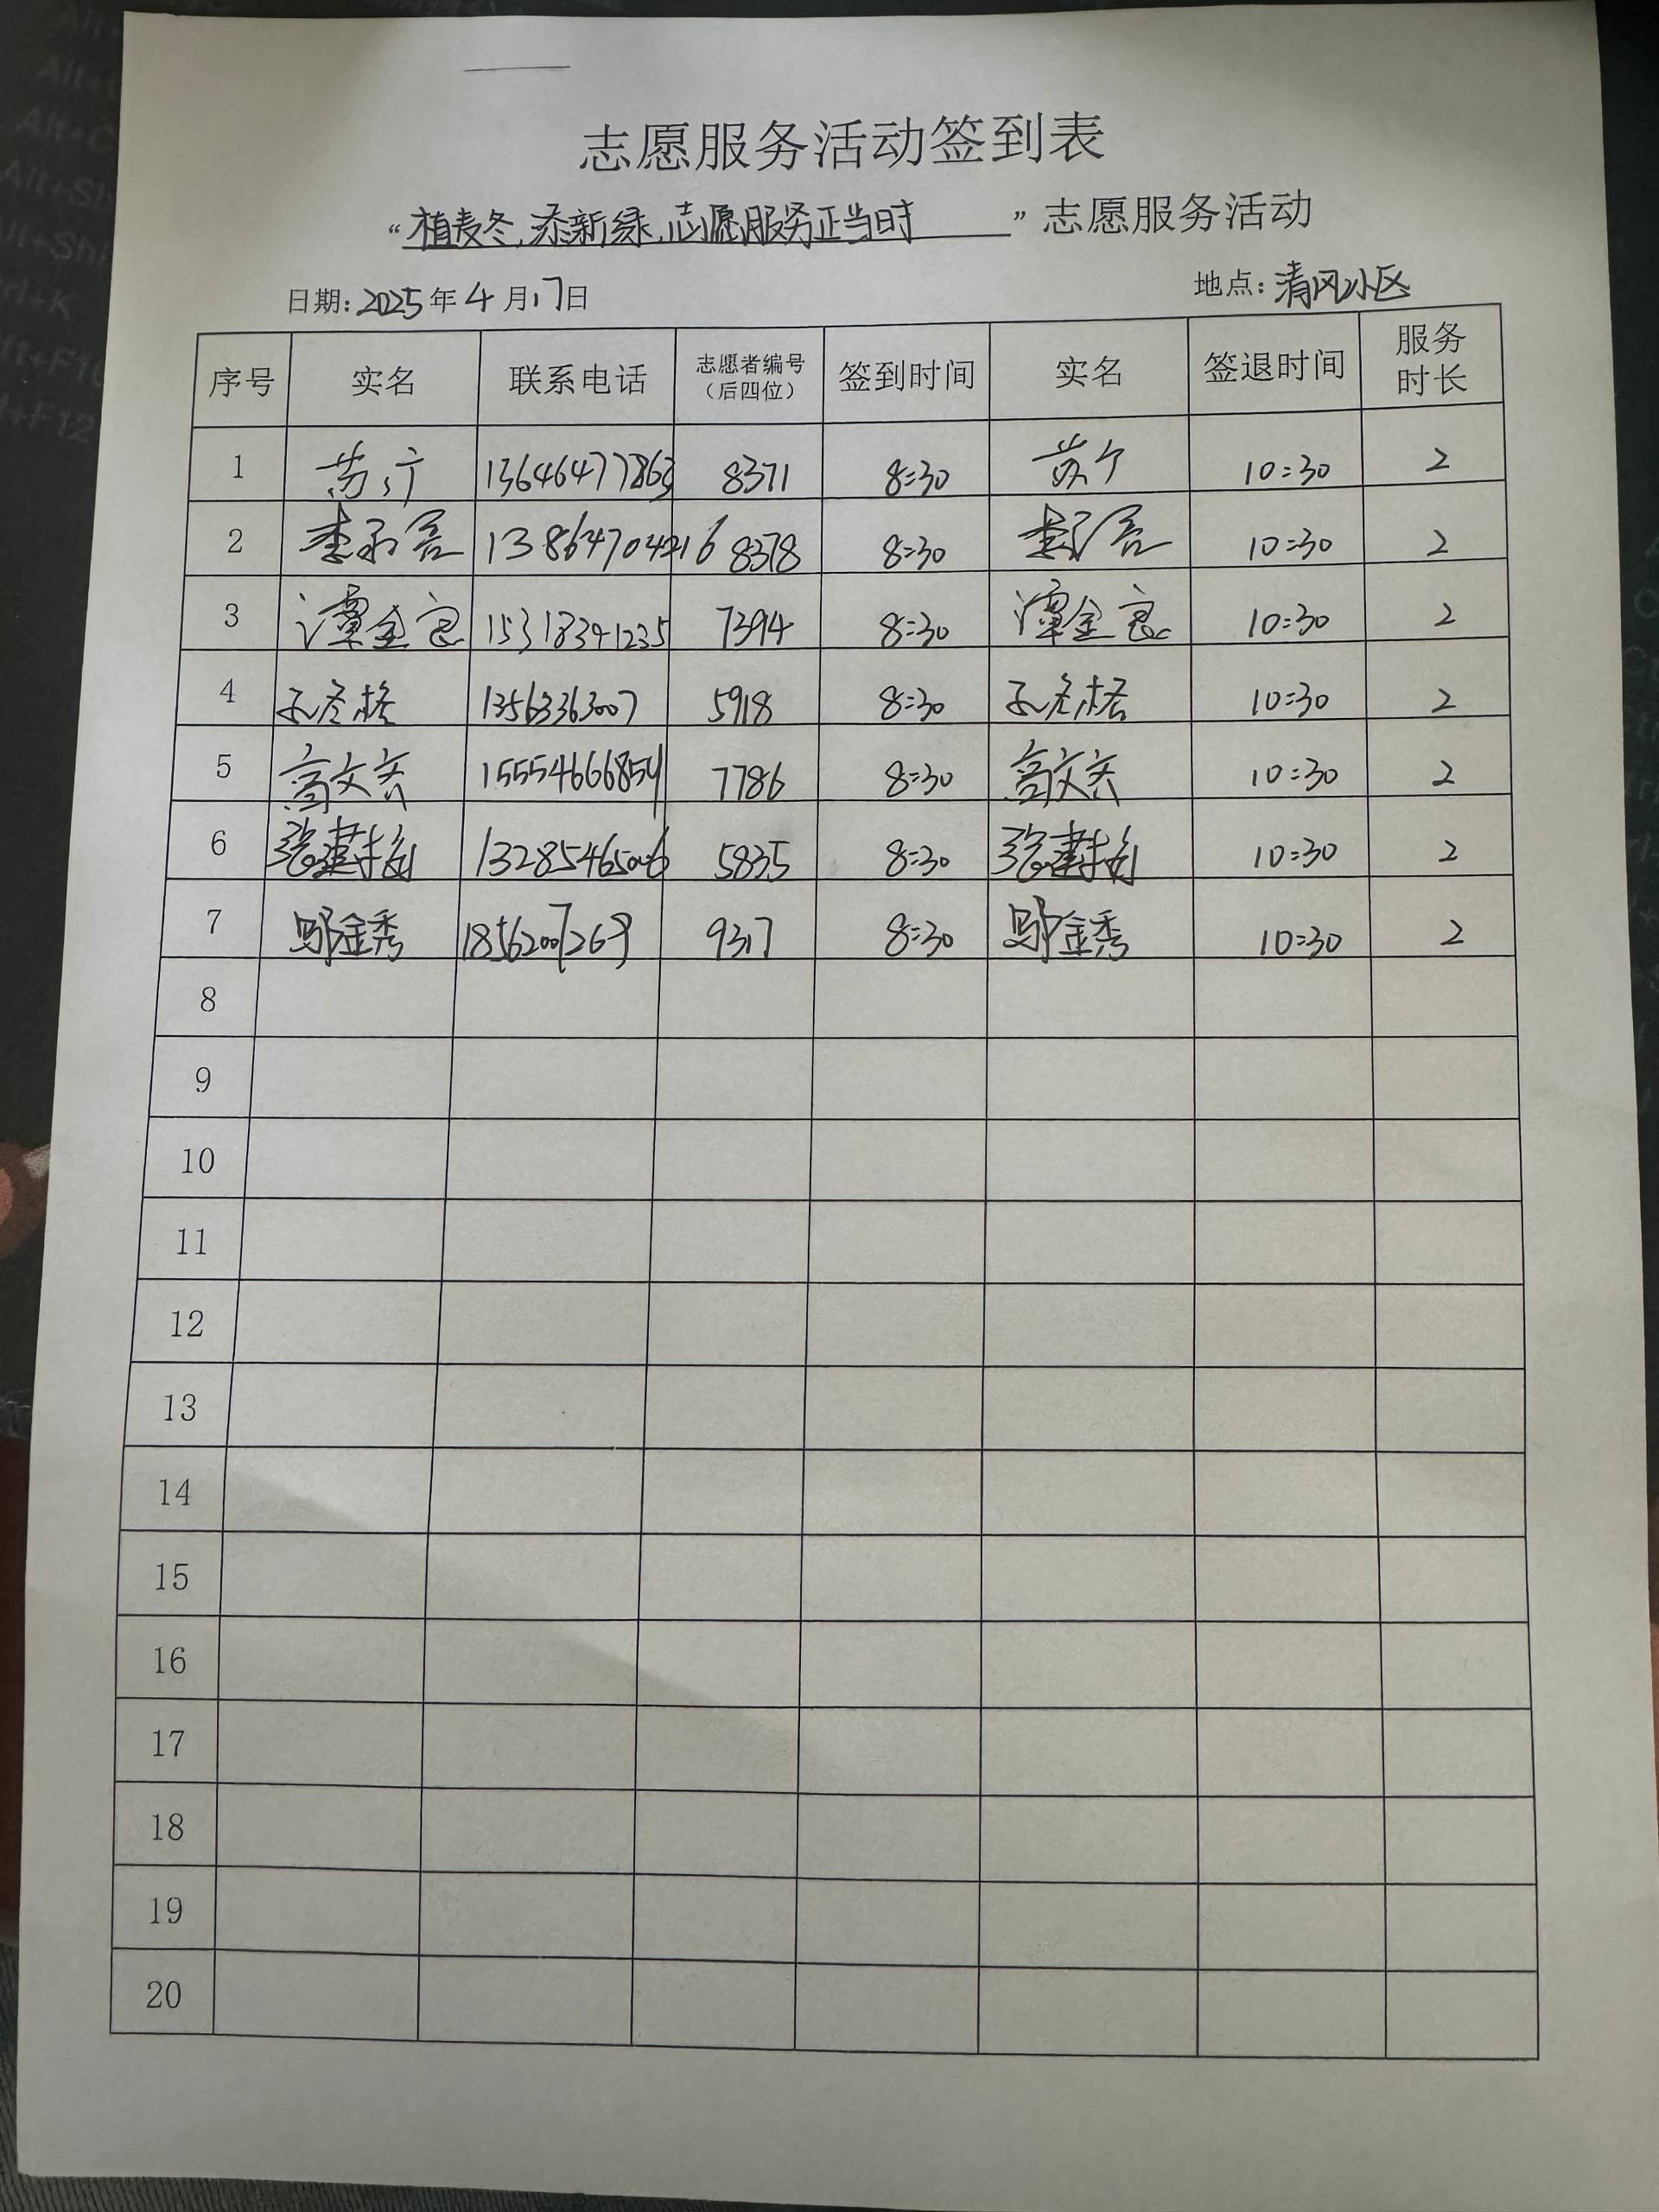 志愿服务活动签到表
“植麦冬,添新绿,志愿服务正当时”志愿服务活动
日期:2025年4月17日 地点:清风小区
序号 实名 联系电话 志愿者编号（后四位） 签到时间 实名 签退时间 服务时长
1 13646477863 8371 8:30 10:30 2
2 13864704216 8378 8:30 10:30 2
3 谭金良 15318341235 7394 8:30 谭金良 10:30 2
4 13563363007 5918 8:30 10:30 2
5 高文 15554666854 7786 8:30 高文 10:30 2
6 张建梅 13285465006 5835 8:30 张建梅 10:30 2
7 邬金秀 18562007269 9317 8:30 邬金秀 10:30 2
8
9
10
11
12
13
14
15
16
17
18
19
20